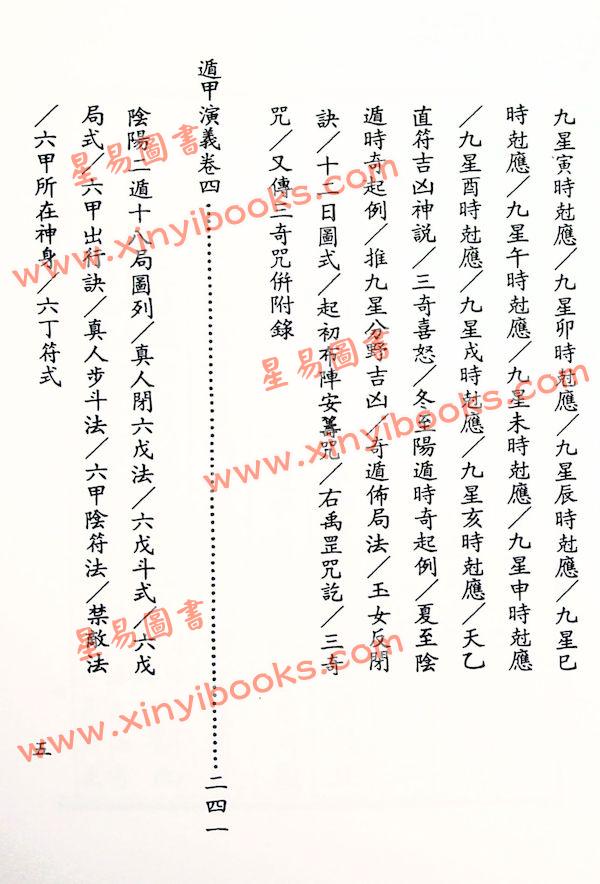 九星寅時尅應／九星卯時尅應／九星辰時尅應／九星巳
時尅應／九星午時尅應／九星未時尅應／九星申時尅應
／九星酉時尅應／九星戌時尅應／九星亥時尅應／天乙
直符吉凶神說／三奇喜怒／冬至陽遁時奇起例／夏至陰
遁時奇起例／推九星分野吉凶／奇遁佈局法／玉女反閉
訣／十二日圖式／起初布陣安籌咒／右禹罡咒訖／三奇
咒／又傳三奇咒併附錄
遁甲演義卷四……………………………………二四一
陰陽二遁十八局圖列／真人閉六戊法／六戊斗式／六戊
局式／六甲出行訣／真人步斗法／六甲陰符法／禁敵法
／六甲所在神身／六丁符式
五
星易圖書
www.xinyibooks.com
星易圖書
www.xinyibooks.com
星易圖書
www.xinyibooks.com